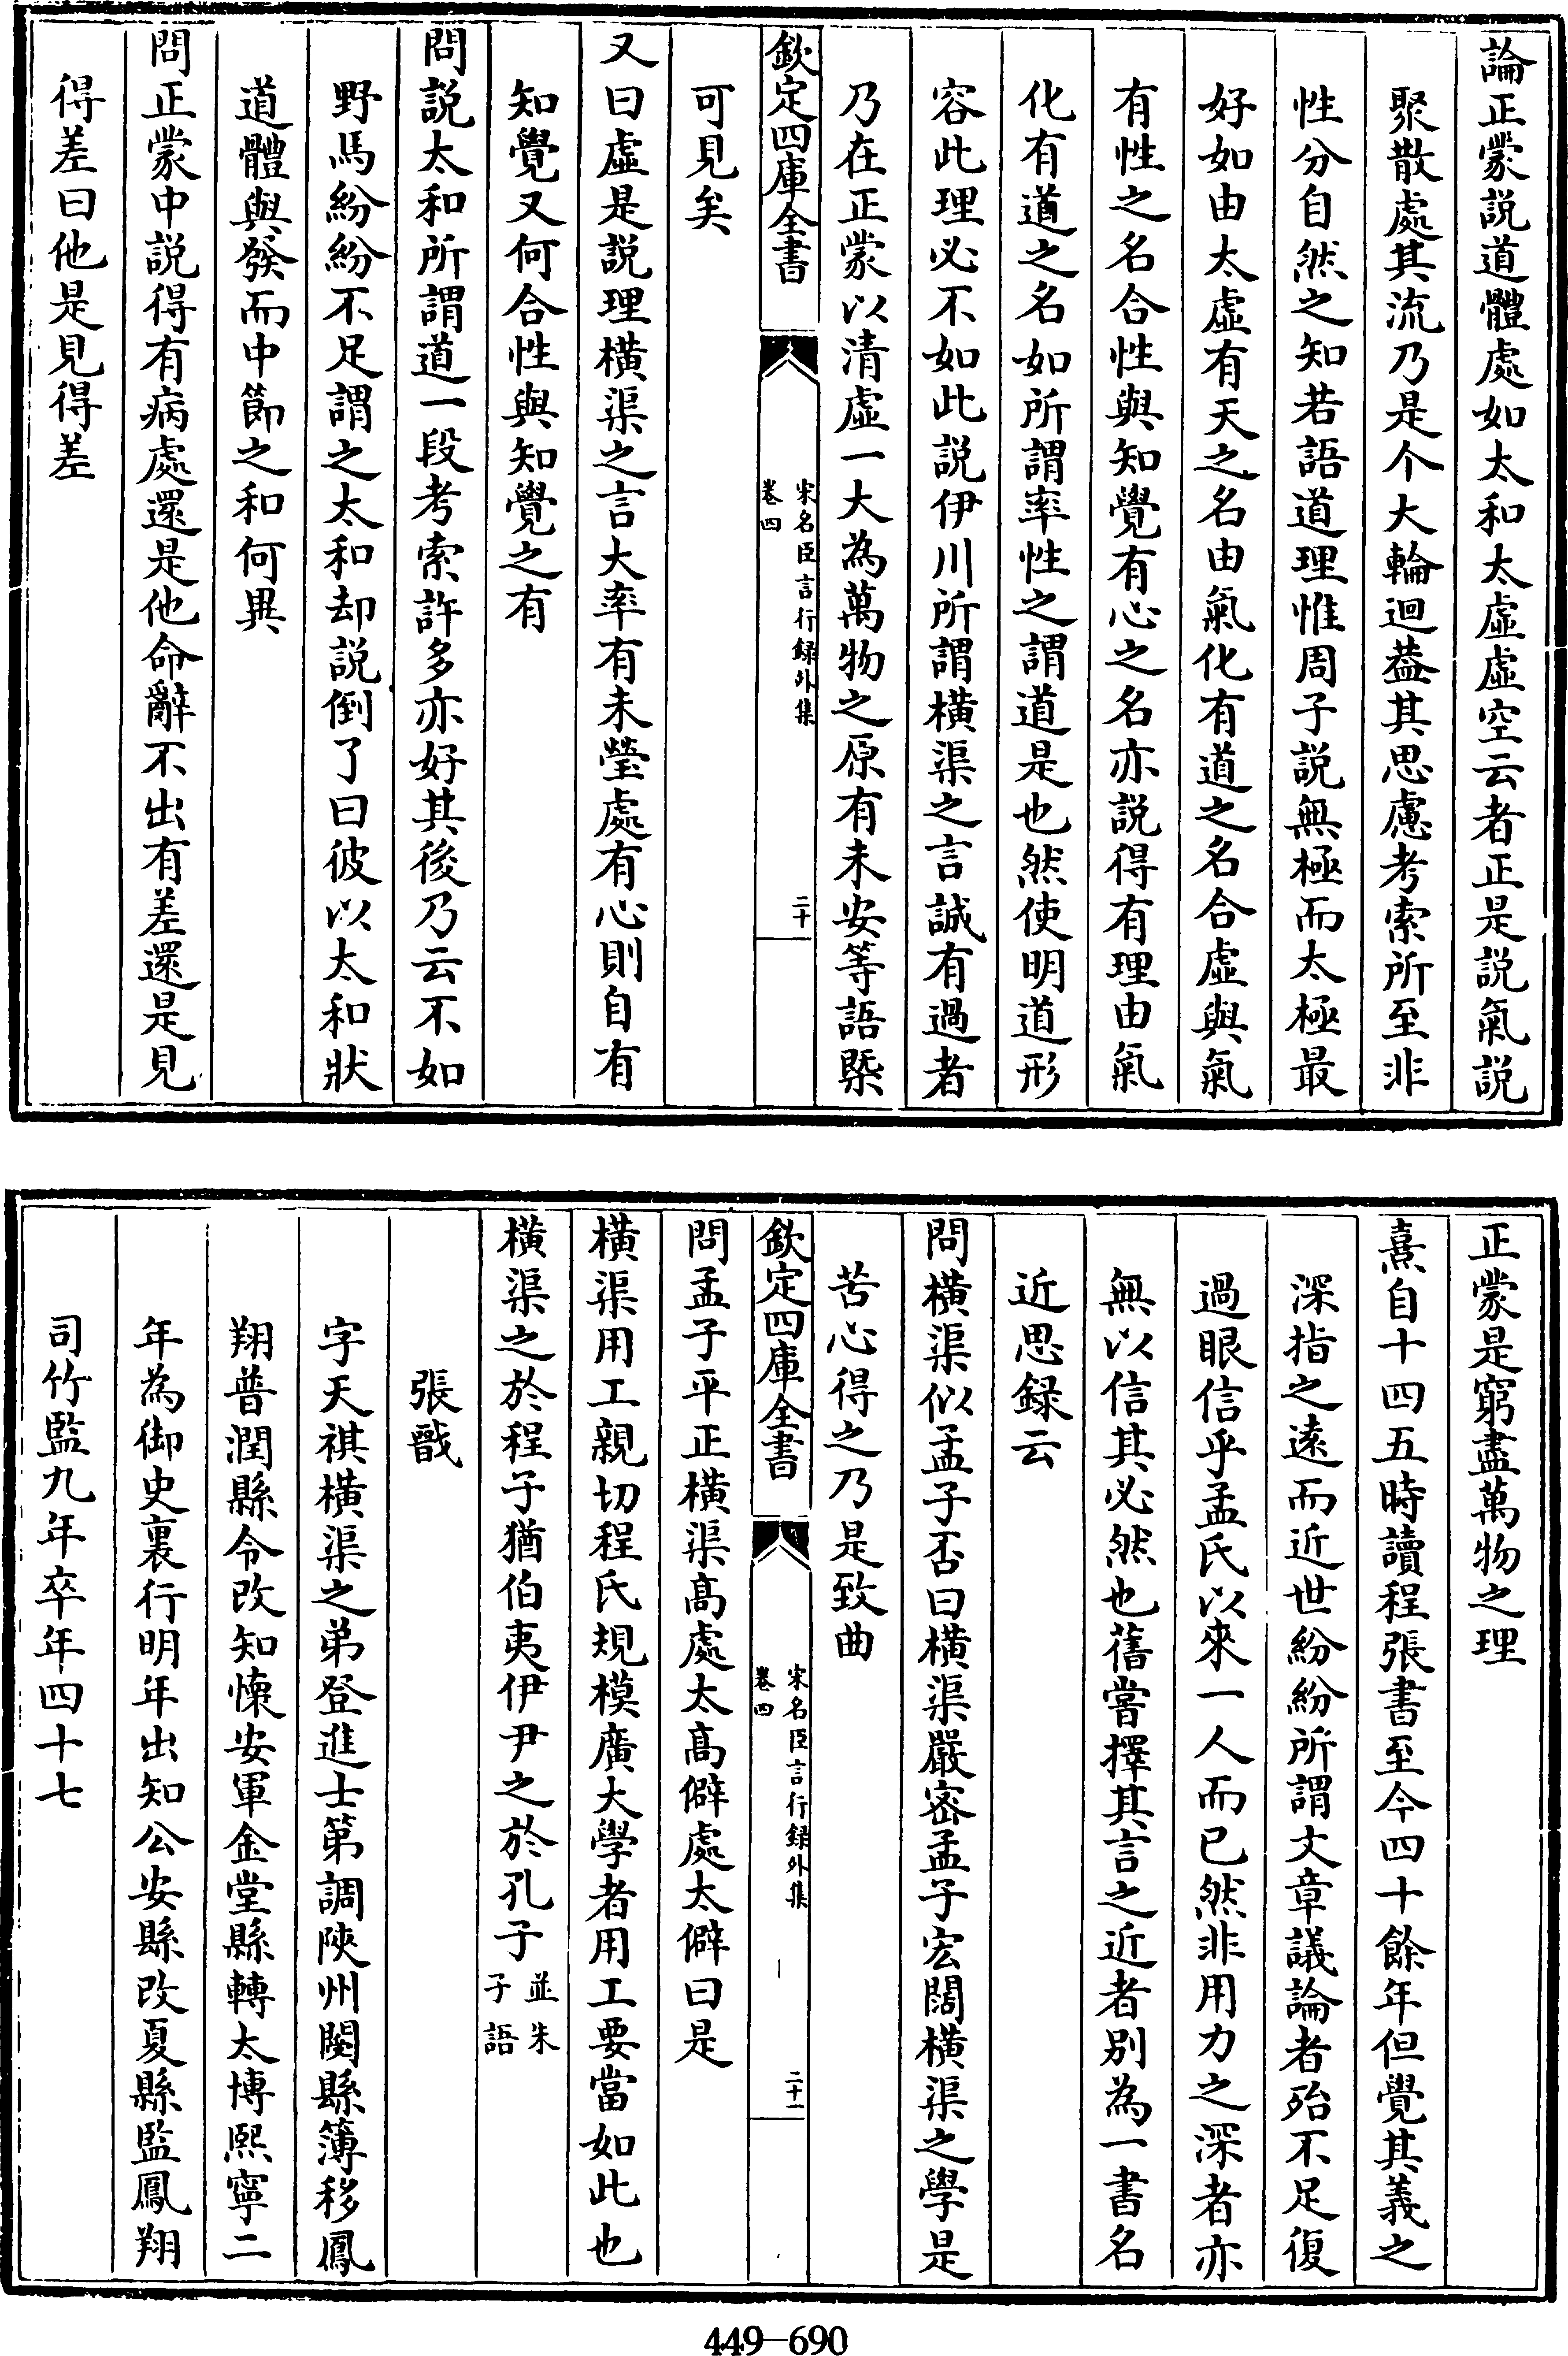 論正蒙説道體處如太和太虚虚空云者正是説氣説
聚散處其流乃是个大輪迴葢其思慮考索所至非
性分自然之知若語道理惟周子説無極而太極最
好如由太虚有天之名由氣化有道之名合虚與氣
有性之名合性與知覺有心之名亦説得有理由氣
化有道之名如所謂率性之謂道是也然使明道形
容此理必不如此説伊川所謂横渠之言誠有過者
乃在正蒙以清虚一大為萬物之原有未安等語槩
可見矣
欽定四庫全書
宋名臣言行録外集
卷四
二十
又曰虚是説理横渠之言大率有未瑩處有心則自有
知覺又何合性與知覺之有
問説太和所謂道一段考索許多亦好其後乃云不如
野馬紛紛不足謂之太和却説倒了曰彼以太和狀
道體與發而中節之和何異
問正蒙中説得有病處還是他命辭不出有差還是見
得差曰他是見得差
正蒙是窮盡萬物之理
熹自十四五時讀程張書至今四十餘年但覺其義之
深指之逺而近世紛紛所謂文章議論者殆不足復
過眼信乎孟氏以來一人而已然非用力之深者亦
無以信其必然也舊嘗擇其言之近者别為一書名
近思録云
問横渠似孟子否曰横渠嚴宻孟子宏闊横渠之學是
苦心得之乃是致曲
欽定四庫全書
宋名臣言行録外集
卷四
二十一
問孟子平正横渠髙處太髙僻處太僻曰是
横渠用工親切程氏規模廣大學者用工要當如此也
横渠之於程子猶伯夷伊尹之於孔子並朱子語
張戩
字天祺横渠之弟登進士第調陜州閿縣簿移鳳
翔普潤縣令改知懷安軍金堂縣轉太博熙寧二
年為御史裏行明年出知公安縣改夏縣監鳳翔
司竹監九年卒年四十七
449—690